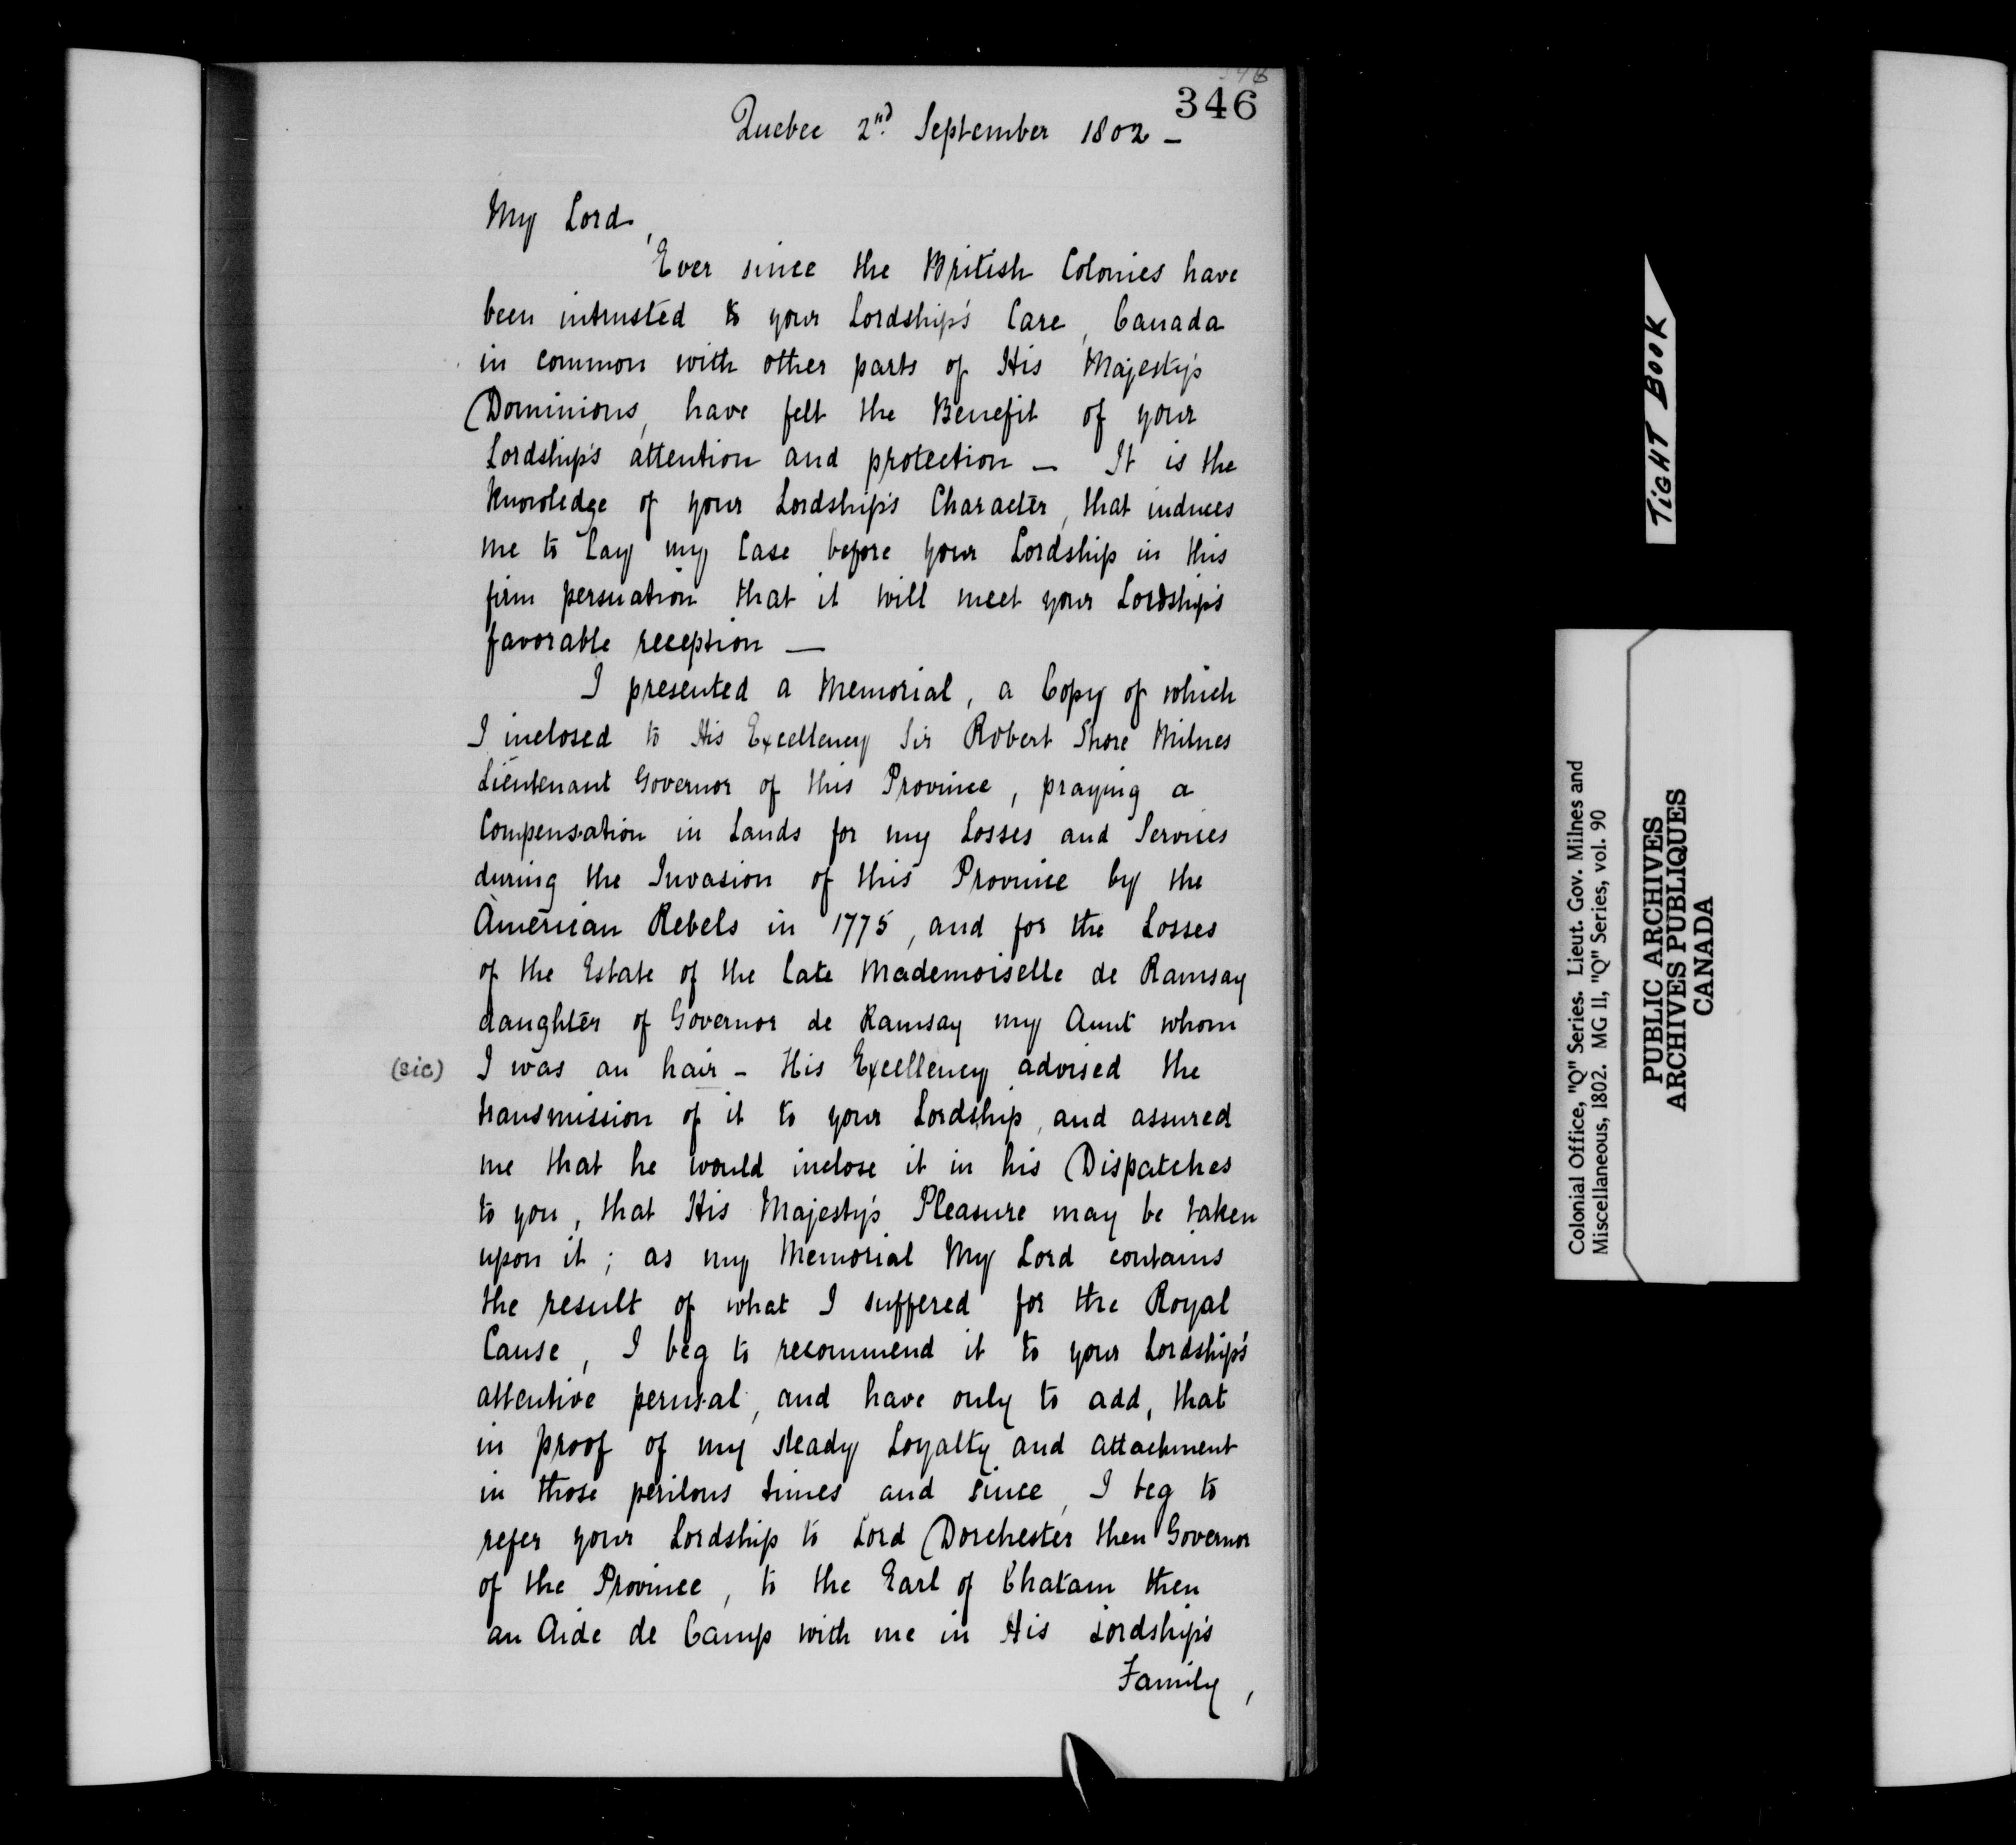 346
Quebec 2nd September 1802 —
My Lord,
Ever since the British Colonies have
been intrusted to your Lordship's Care, Canada
in common with other parts of His Majesty's
Dominions, have felt the Benefit of your
Lordship's attention and protection — It is the
Knowledge of your Lordship's Character, that induces
me to Lay my Case before your Lordship in this
firm persuation that it will meet your Lordship's
favorable reception —
I presented a Memorial, a Copy of which
I inclosed to His Excellency Sir Robert Shore Milnes
Lieutenant Governor of this Province, praying a
Compensation in Lands for my Losses and Services
during the Invasion of this Province by the
American Rebels in 1775, and for the Losses
of the Estate of the Late Mademoiselle de Ramsay
daughter of Governor de Ramsay my Aunt whom
(sic) I was an hair — His Excellency advised the
transmission of it to your Lordship, and assured
me that he would inclose it in his Dispatches
to you, that His Majesty's Pleasure may be taken
upon it; as my Memorial My Lord contains
the result of what I suffered for the Royal
Cause, I beg to recommend it to your Lordship's
attentive perusal, and have only to add, that
in proof of my steady Loyalty and attachment
in those perilous times and since, I beg to
refer your Lordship to Lord Dorchester then Governor
of the Province, to the Earl of Chatam then
an Aide de Camp with me in His Lordship's
Family,
TIGHT BOOK
Colonial Office, "Q" Series. Lieut. Gov. Milnes and
Miscellaneous, 1802. MG 11, "Q" Series, vol. 90
PUBLIC ARCHIVES
ARCHIVES PUBLIQUES
CANADA